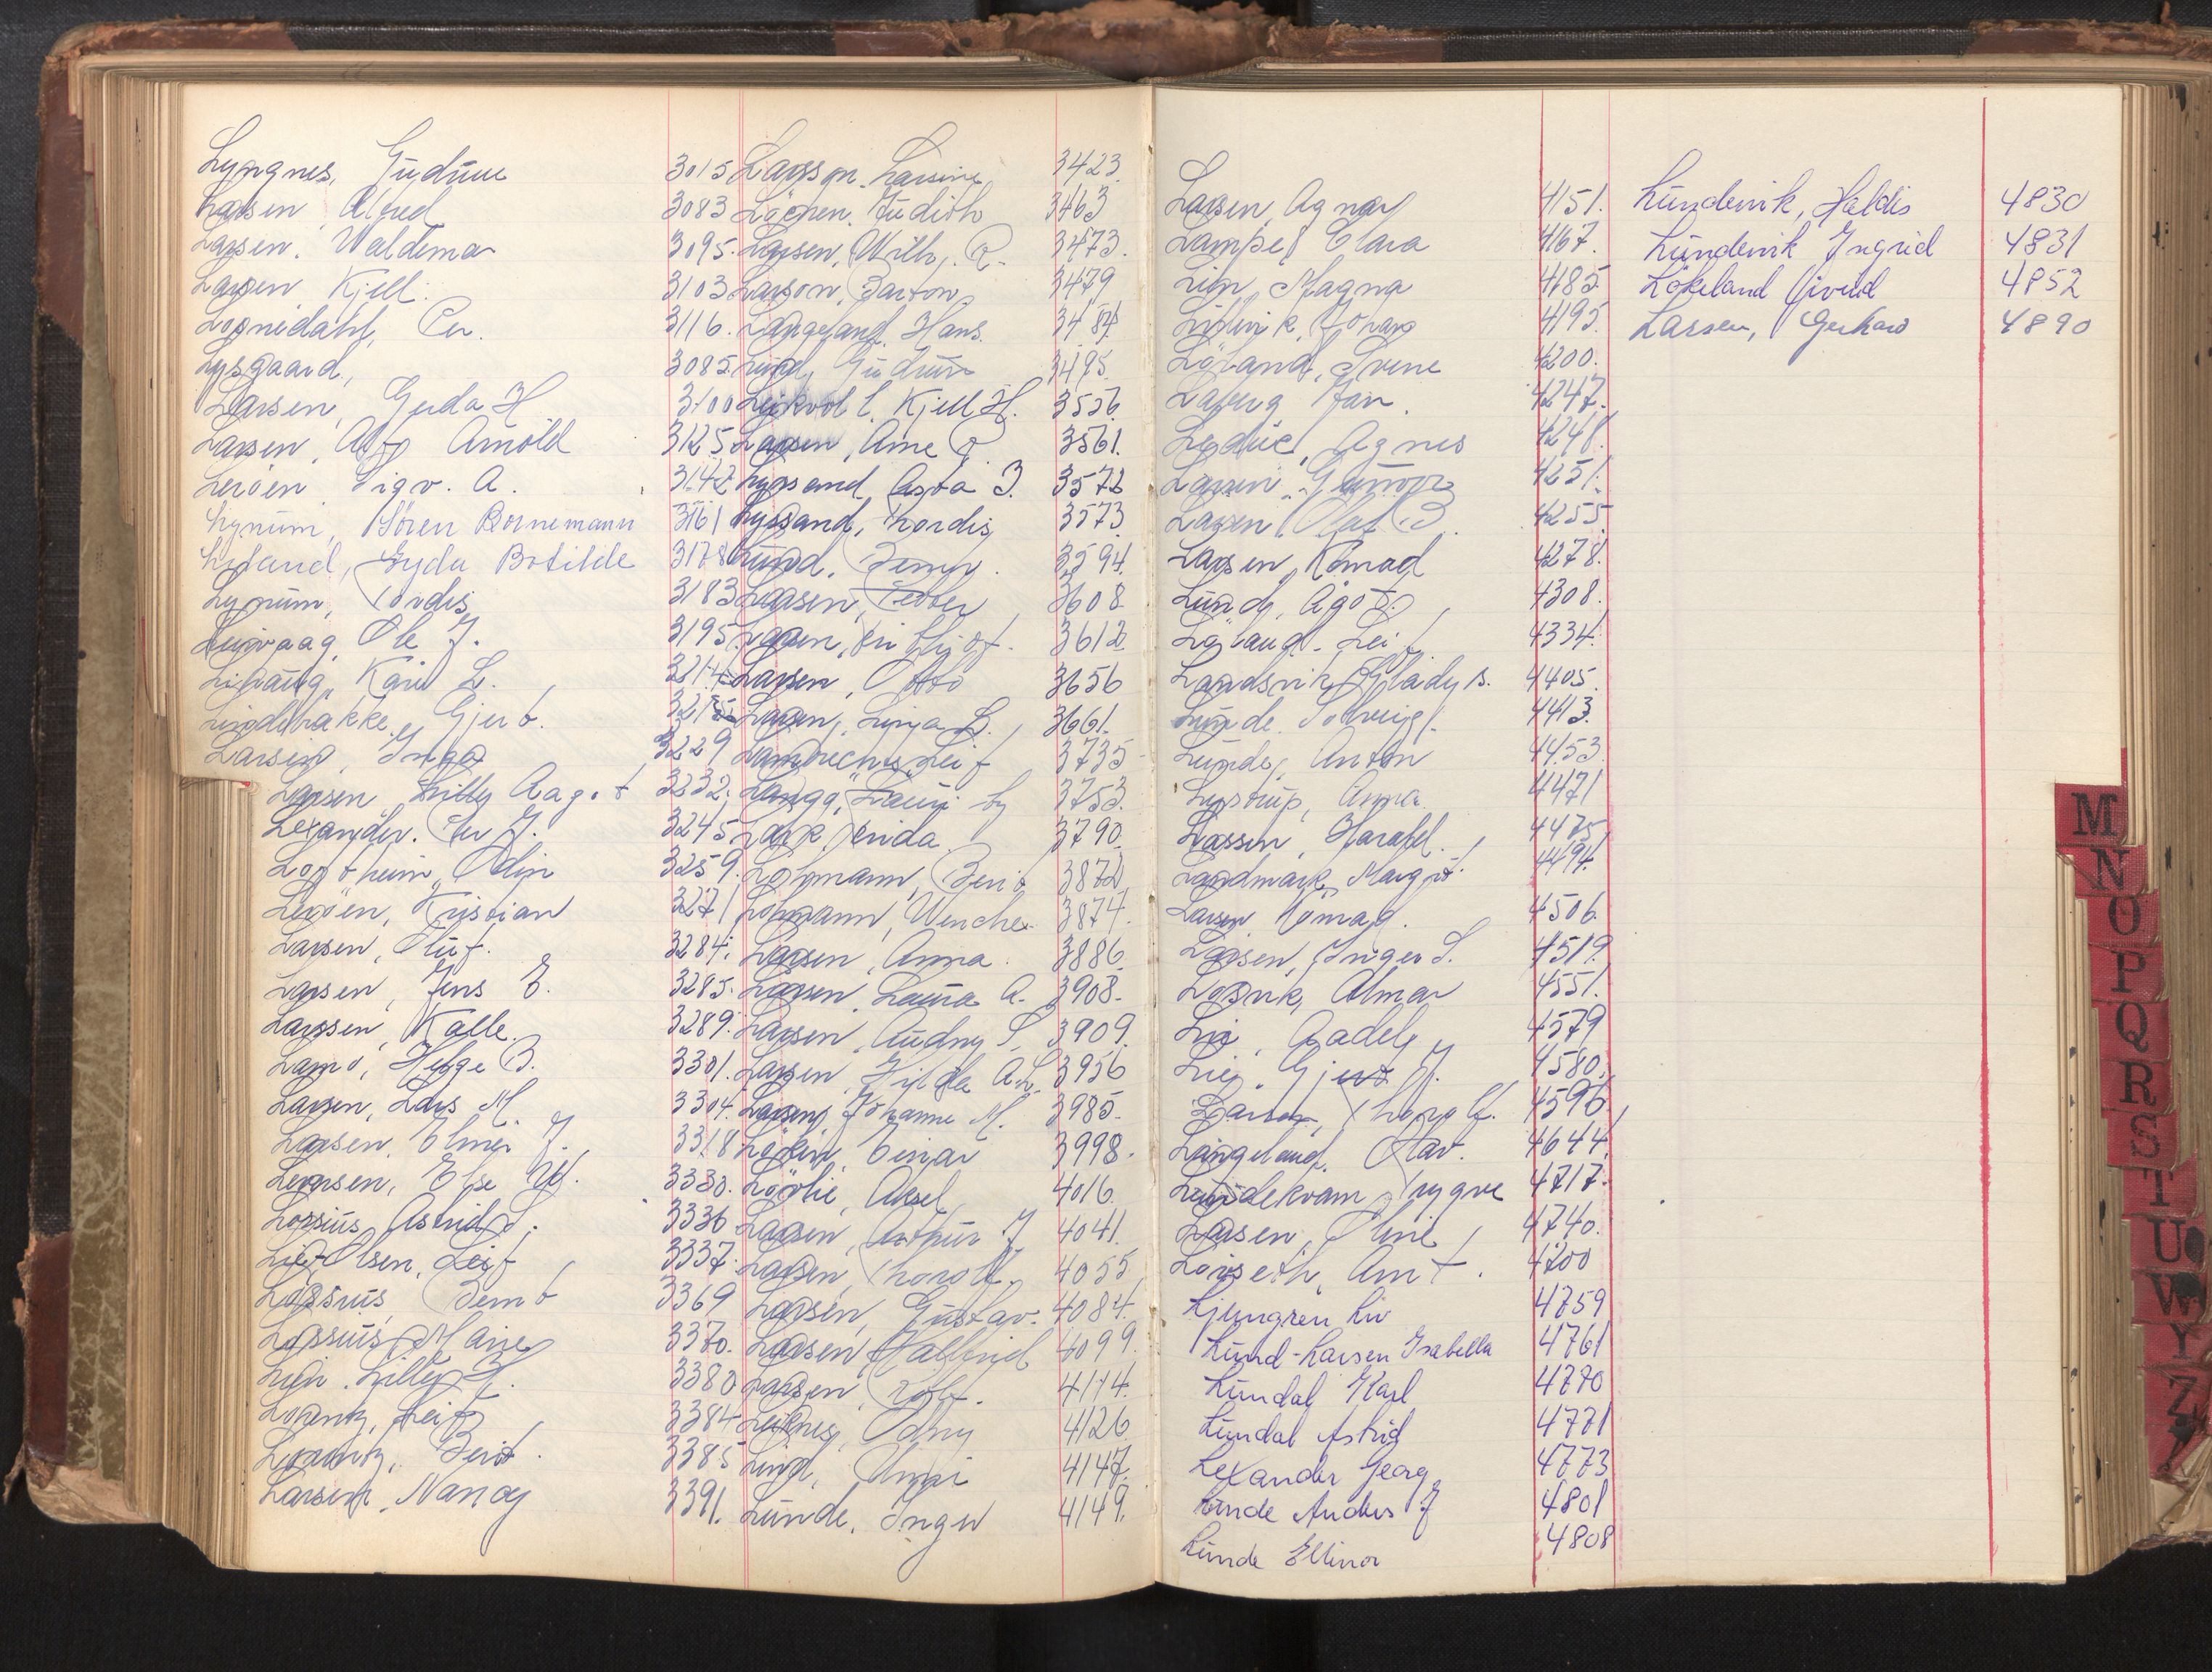 Lyngnes, Gudrun 3015
Larsen Alfred 3083
Larsen. Waldemar 3095.
Larsen Kjell. 3103
Lognedahl, Per. 3116.
Lysgaard, 3085
Larsen, Gerda H 3100
Larsen, Arnold 3125
Lerøen Sigv. A. 3142
Lynum, Søren Bornemann 3161
Gyda Botilde 3178
Lynum, Tordis 3183
Ole J. 3195
Kåre L.
Lindebakke, Gjert.
Larsen, Inga 3229
Larsen Lilly Aagot 3232.
Lexander. Per J. 3245
Odin 3259.
Lerøen, Kristian 3271
Larsen, Oluf. 3284.
Larsen, Jens E. 3285.
Larssen, Kalle. 3289.
Helge B. 3301.
Larsen, Lars M. 3304.
Larsen, Elmer J. 3318
Larsen, Else W. 3330.
Lossius, Astrid S. 3336
Lie-Olsen, Leif 3337
Lossius, Bernt 3369
Lossius, Marie 3370.
Lien. Lilly H. 3380
Lorentz, Leif 3384
Lorentz, Berit. 3385
Larsen, Nancy 3391.
Larsson. Larsine 3423.
Judith 3463
Larsen, Wilh. R. 3473.
Larson, Barton 3479
Langeland. Hans. 3484.
Lund, Gudrun 3495.
Leikvoll, Kjell H. 3536.
Larsen, Arne R. 3561.
Lyssand, Asta J. 3572
Lyssand, Thordis 3573
Lund, Jenny. 3594.
Larsen, Petter 3608
Larsen, Fritjof. 3612
Larsen, Otto 3656
Larsen, Linja L. 3661.
Lambrechts, Leif 3735
3753.
Lark, Frida 3790.
Lohmann, Berit 3872
Lohmann, Wenche 3874.
Larsen, Anna. 3886
Larsen, Laura A. 3908.
Larsen, Audny S. 3909.
Larsen, Hilda A.L. 3956
Larsen, Johanne M. 3985.
Einar 3998.
Aksel 4016.
Larsen, Arthur J 4041.
Larsen, Thorolf. 4055
Larsen, Gustav. 4084.
Larsen, Halfrid 4099.
Larsen, Rolf. 4114.
Leiknes, Odny 4126
Lind, Anni 4147.
Lunde, Inger 4149.
Larsen, Agnar 4151.
Lampe, Clara 4167.
Lien, Magna 4185.
Lidvik, Johan 4195.
Løland, Svene 4200.
Laberg Jan. 4247.
Leduc, Agnes 4248.
Larsen, Gunvor 4251.
Larsen, Olaf B. 4255
Larsen, Konrad 4278.
Lund, Ågot. 4308.
Løland, Leif 4334.
Landsvik, Gladys. 4405.
Lunde, Solveig. 4413.
Lunde, Anton 4453
Lystrup, Anna. 4471
Lassen, Harald. 4475
Landmark, Margit. 4494.
Larsen, 4506
Larsen, Inger S. 4519.
Almar 4551.
Lie, Aadel 4579
Lie, Gjert J. 4580.
Larsen, Thorolf. 4596
Langeland, Olav. 4644.
Lundekvam, Trygve 4717.
Larsen, Oline 4740.
Lønseth, Arnt. 4700
Ljungren Liv 4759
Lund-Larsen Isabella 4761
Lundal Karl 4770
Lundal Astrid 4771
Lexander Georg 4773
Anders J 4801
Lunde Ellinor 4808
Lundervik, Haldis 4830
Lundervik Yngrid 4831
Løkeland Eivind 4852
Larsen, Gerhard 4890
M
N
O
P
Q
R
S
T
U
W
Y
Z